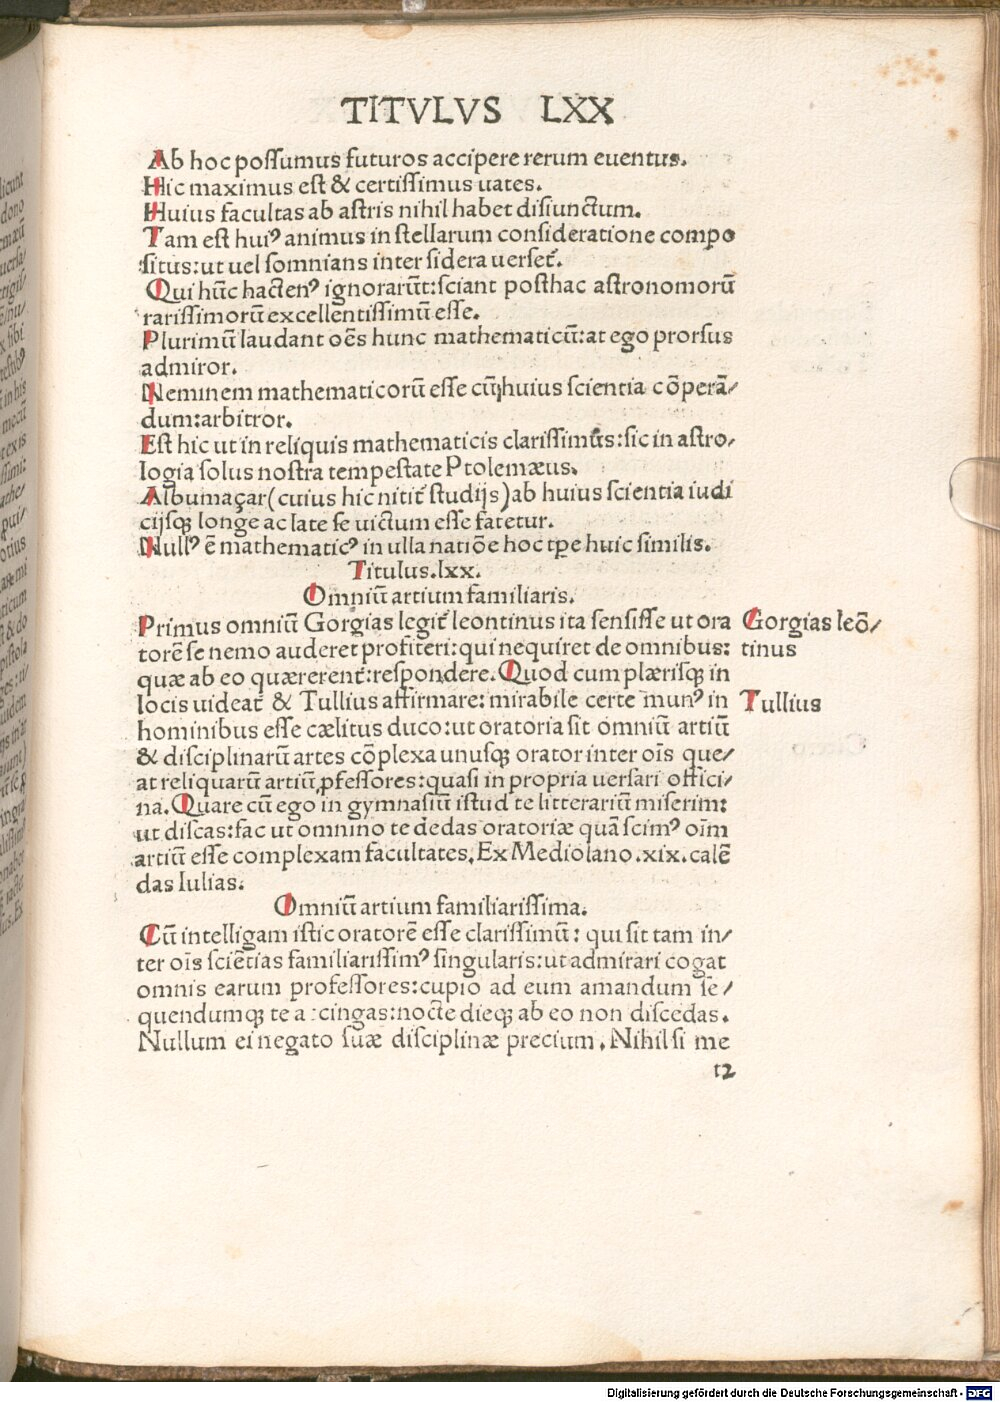 TITVLVS LXX
Ab hoc possumus futuros accipere rerum euentus.
Hic maximus est & certissimus uates.
Huius facultas ab astris nihil habet disiunctum.
Tam est huiꝰ animus in stellarum consideratione compo
situs: ut uel somnians inter sidera uerset᷑.
Qui hūc hactenꝰ ignorarūt: sciant posthac astronomorū
rarissimorū excellentissimū esse.
Plurimū laudant oēs hunc mathematicū: at ego prorsus
admiror.
Neminem mathematicorū esse cū huius scientia cōperā/
dum: arbitror.
Est hic ut in reliquis mathematicis clarissimus: sic in astro/
logia solus nostra tempestate Ptolemæus.
Albumaçar (cuius hic nitit᷑ studijs) ab huius scientia iudi
cijsqꝫ longe ac late se uictum esse fatetur.
Nullꝰ ē mathematicꝰ in ulla natiōe hoc tꝑe huic similis.
Titulus.lxx.
Omniū artium familiaris.
Primus omniū Gorgias legit᷑ leontinus ita sensisse ut ora
torē se nemo auderet profiteri: qui nequiret de omnibus:
quæ ab eo quærerent᷑: respondere. Quod cum plærisqꝫ in
locis uideat᷑ & Tullius affirmare: mirabile certe munꝰ in
hominibus esse cælitus duco: ut oratoria sit omniū artiū
& disciplinarū artes cōplexa unusqꝫ orator inter oīs que/
at reliquarū artiū ꝓfessores: quasi in propria uersari offici/
na. Quare cū ego in gymnasiū istud te litterariū miserim:
ut discas: fac ut omnino te dedas oratoriæ quā scimꝰ oīm
artiū esse complexam facultates. Ex Mediolano .xix. calē
das Iulias.
Omniū artium familiarissima.
Cū intelligam istic oratorē esse clarissimū: qui sit tam in/
ter oīs sciētias familiarissimꝰ singularis: ut admirari cogat
omnis earum professores: cupio ad eum amandum se/
quendumqꝫ te a cingas: nocte dieqꝫ ab eo non discedas.
Nullum ei negato suæ disciplinæ precium. Nihil si me
t2
Gorgias leō/
tinus
Tullius
Digitalisierung gefördert durch die Deutsche Forschungsgemeinschaft - DFG